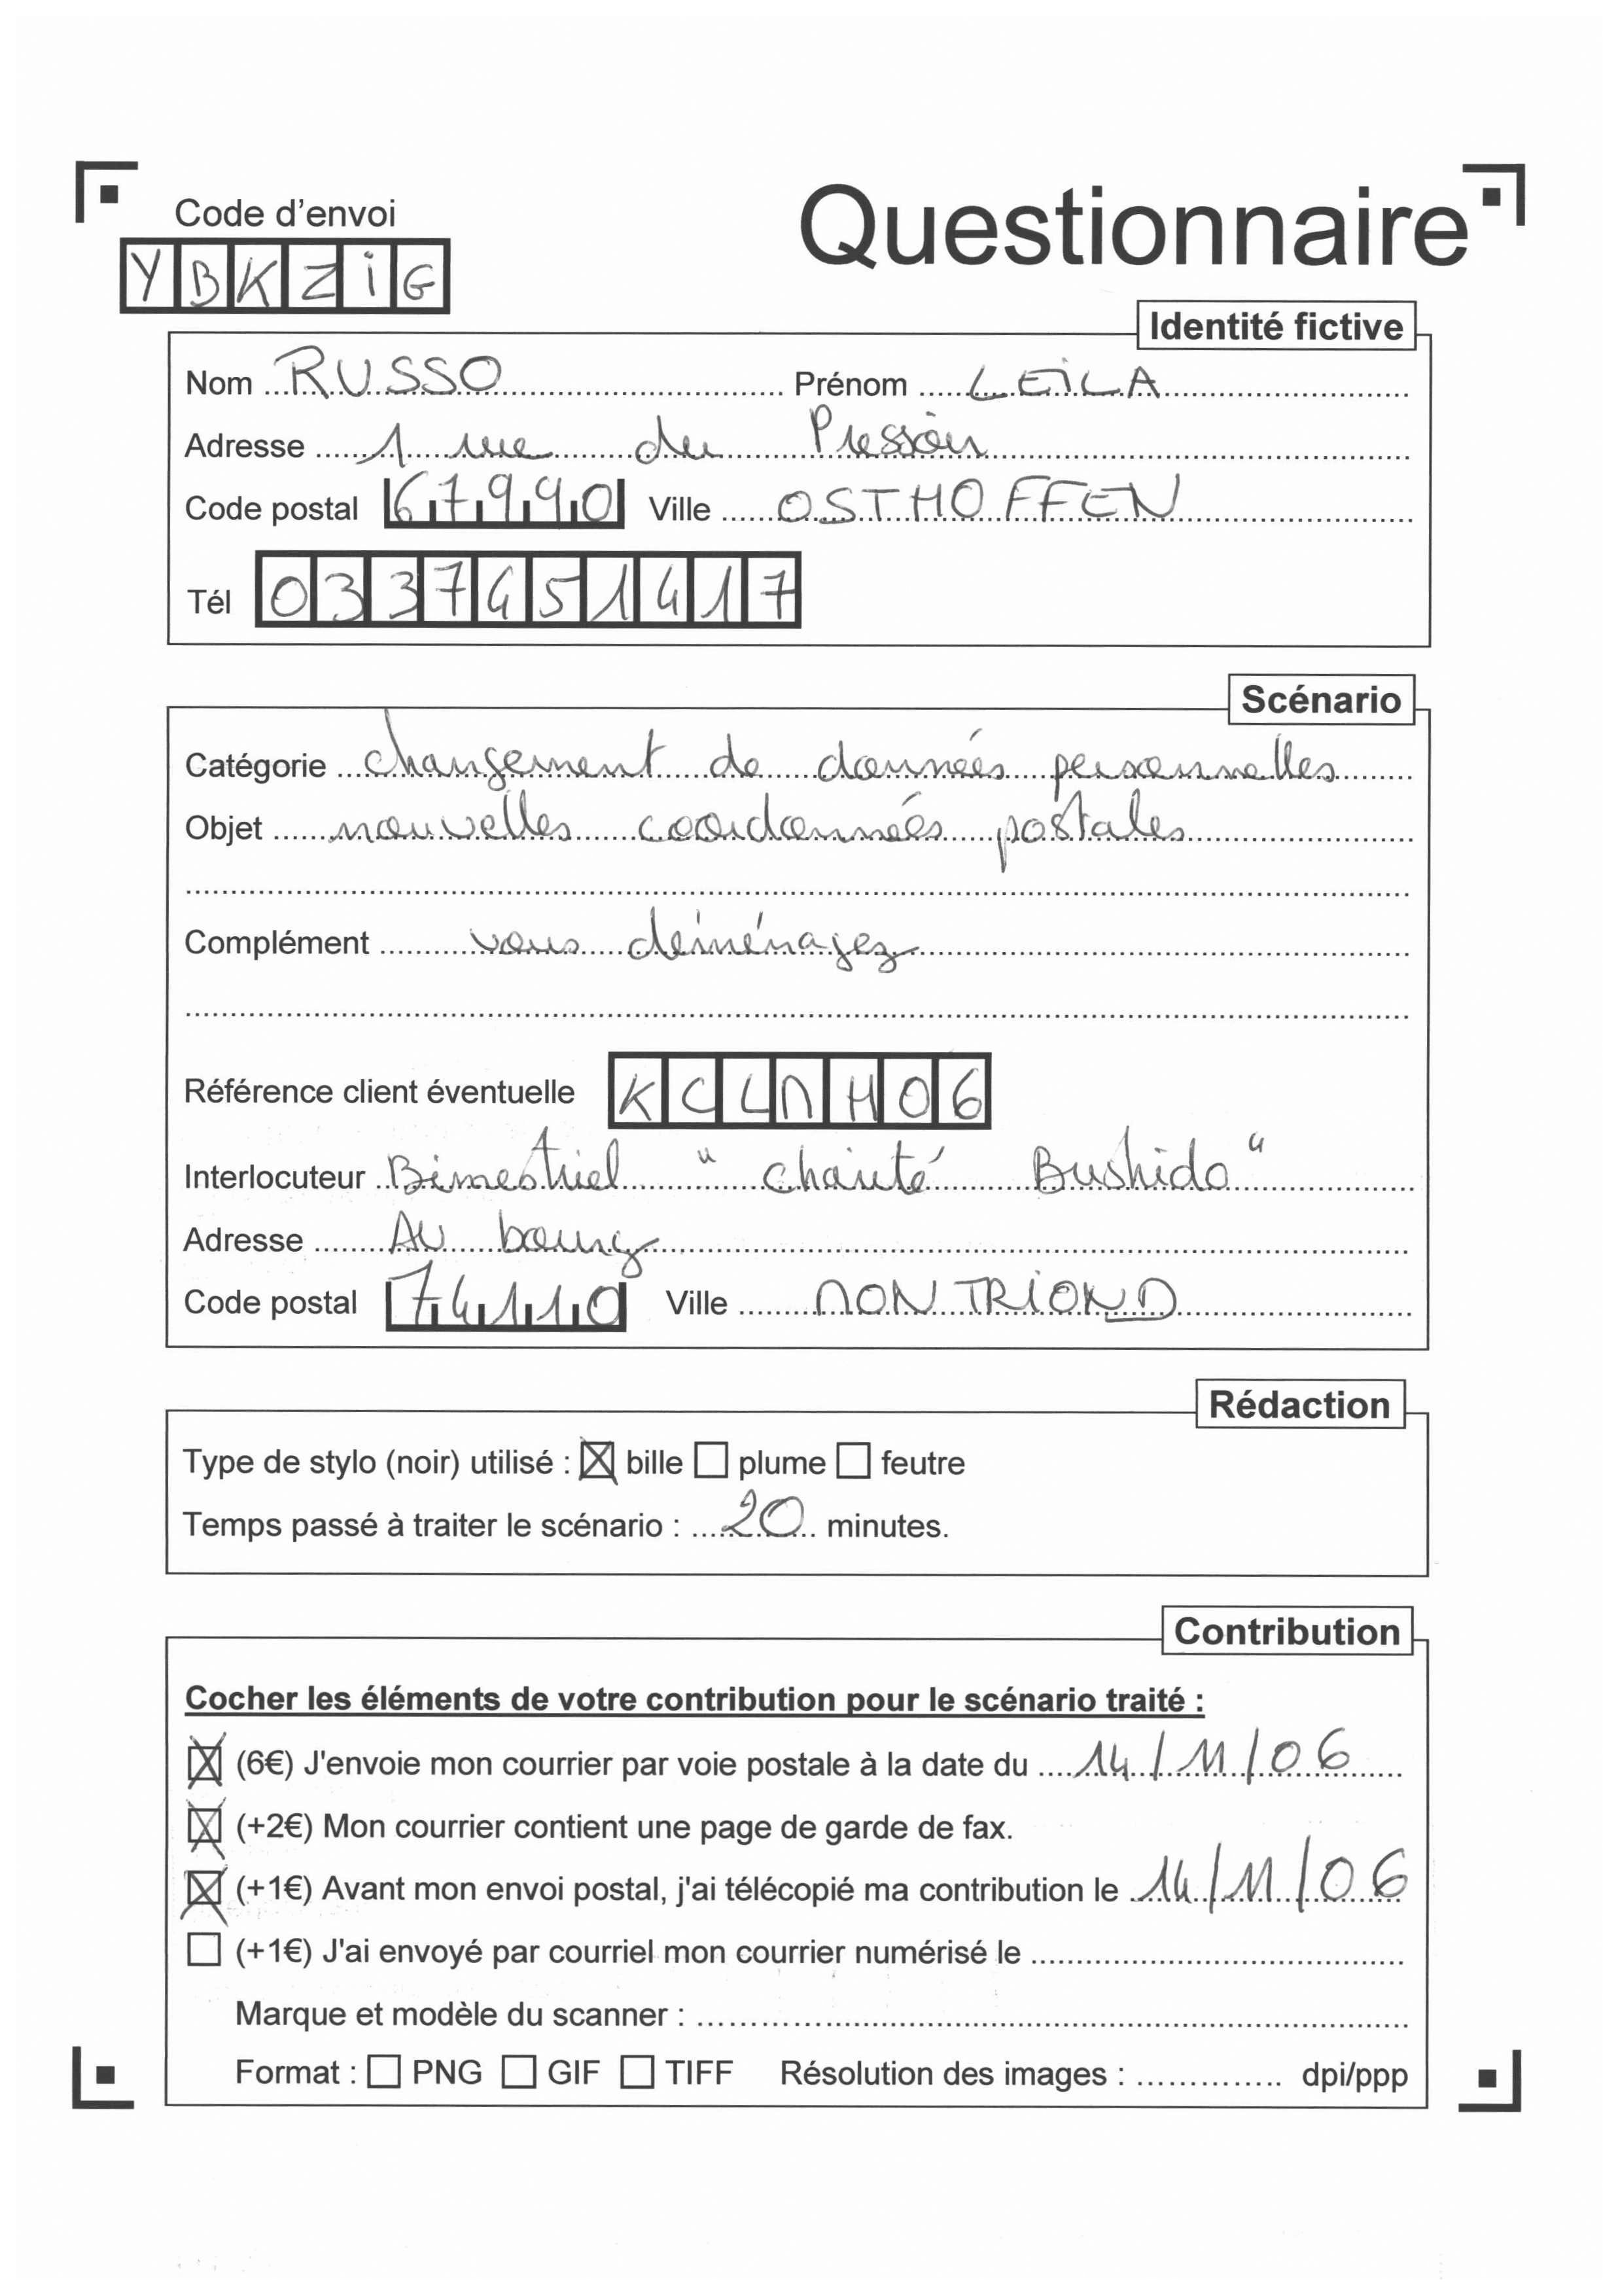 Code d'envoi
Questionnaire
YBKZiG
Identité fictive
Nom RUSSO Prénom LEILA
Adresse 1 rue du Pressoir
Code postal 67990 Ville OSTHOFFEN
Tél 0337451417
Scénario
Catégorie changement de données personnelles
Objet nouvelles coordonnées postales
Complément vous déménagez
Référence client éventuelle KCLMH06
Interlocuteur Bimestriel "Chaité Bushido"
Adresse Au bourg
Code postal 74110 Ville MONTRIOND
Rédaction
Type de stylo (noir) utilisé : ☒ bille ☐ plume ☐ feutre
Temps passé à traiter le scénario : 20 minutes.
Contribution
Cocher les éléments de votre contribution pour le scénario traité :
☒ (6€) J'envoie mon courrier par voie postale à la date du 14/11/06
☒ (+2€) Mon courrier contient une page de garde de fax.
☒ (+1€) Avant mon envoi postal, j'ai télécopié ma contribution le 14/11/06
☐ (+1€) J'ai envoyé par courriel mon courrier numérisé le
Marque et modèle du scanner :
Format : ☐ PNG ☐ GIF ☐ TIFF Résolution des images : dpi/ppp